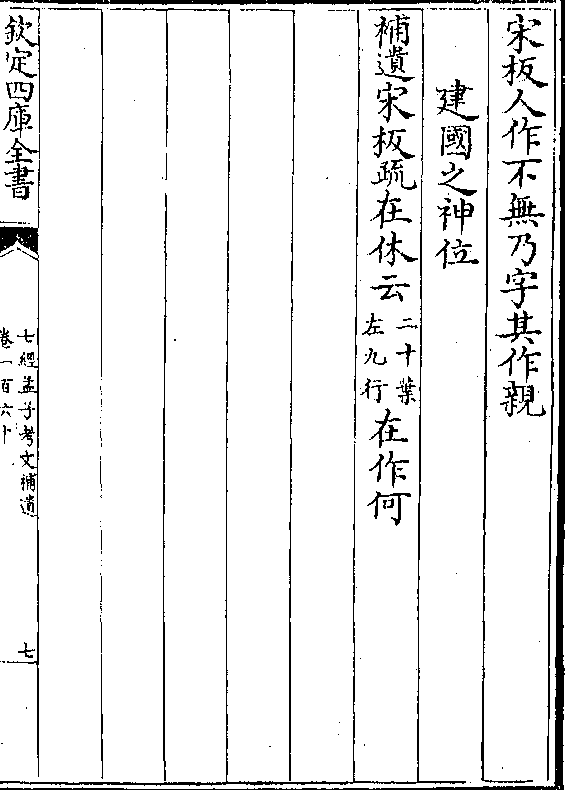 宋板人作不無乃字其作親
建國之神位
補遺宋板疏在休云二十葉左九行在作何
欽定四庫全書
七經孟子考文補遺
卷一百六十
七